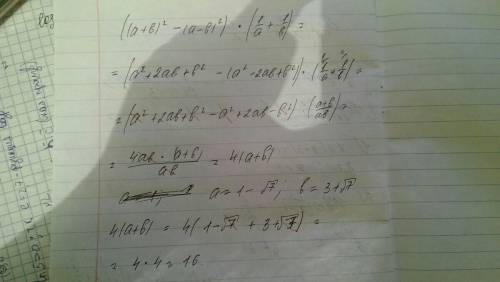 ((a+b)² - (a-b)²) · (1/a + 1/b) =
= (a²+2ab+b² - (a²-2ab+b²)) · (1/a + 1/b) =
= (a²+2ab+b² - a²+2ab-b²) · (a+b/ab) =
= 4ab·(a+b)/ab = 4(a+b)
a = 1-√7; b = 3+√7
4(a+b) = 4(1-√7 + 3+√7) =
= 4·4 = 16